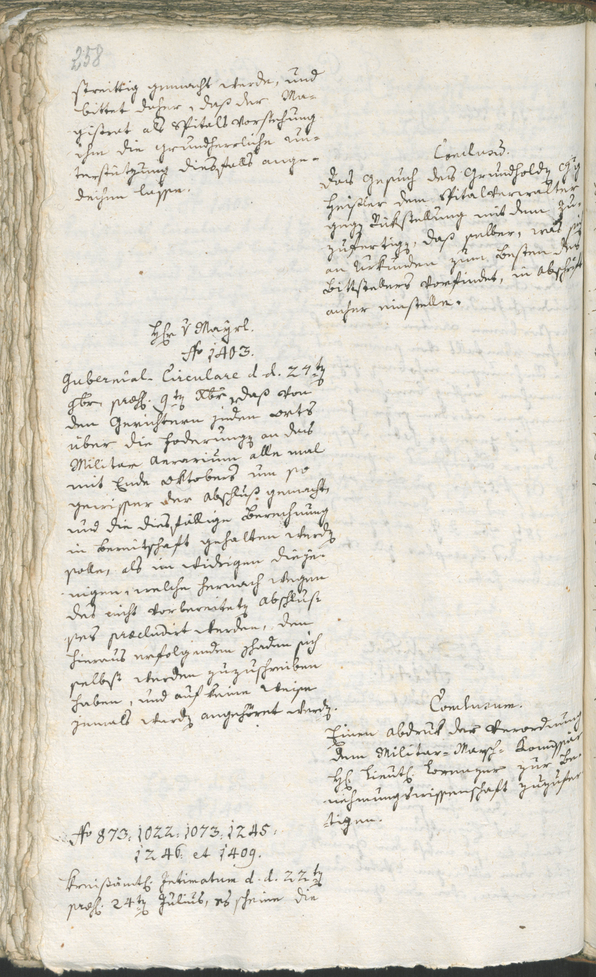 258
streitig gemacht werde, und
bittet daher, daß der Ma-
gistrat als Spitalsvorstehung
ihm die grundherrliche Un-
terstützung diesfalls ange-
deihen lassen.
Conclusum.
Das Gesuch des Grundholden
Heißler dem Spitalverwalter
gegen Rückstellung mit dem zu-
zufertigen, daß selber, was sich
an Urkunden zum Besten des
Bittstellers vorfindet, in Abschrift
anher einstelle.
Hr. v Mayrl.
No 1403.
Gubernial-Circulare d. d. 27ten
9ber præs. 9ten Xber, daß von
den Gerichtern jeden Orts
über die Foderungen an das
Militar Aerarium alle mal
mit Ende Oktobers um so
gewisser der Abschluß gemacht,
und die diesfällige Berechnung
in Bereitschaft gehalten werden
solle, als im widrigen dieje-
nigen, welche hernach wegen
des nicht vorbereiteten Abschlus-
ses præcludirt werden, den
hieraus erfolgenden Schaden sich
selbst werden zuzuschreiben
haben, und auf keine Weise
jemals werden angehöret werden.
Conclusum.
Einen Abdruk der Verordnung
dem Militar-Marsch-Komissär
H. Lieut. Lorenzer zur Be-
nehmungswissenschaft zuzufer
tigen.
No 873, 1022, 1073, 1245,
1246 et 1409.
Kreisämtl. Intimatum d. d. 22ten
præs. 24ten Julius, es scheine die